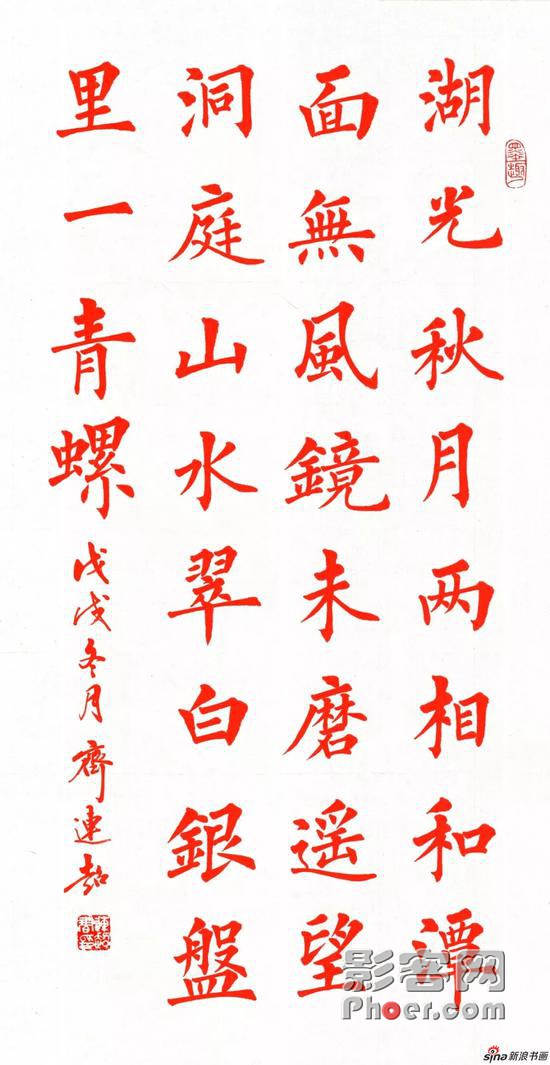 墨趣
湖光秋月两相和潭
面無風鏡未磨遥望
洞庭山水翠白銀盤
里一青螺
戊戌冬月齊連
影客网
Phoer.com
sina新浪书画